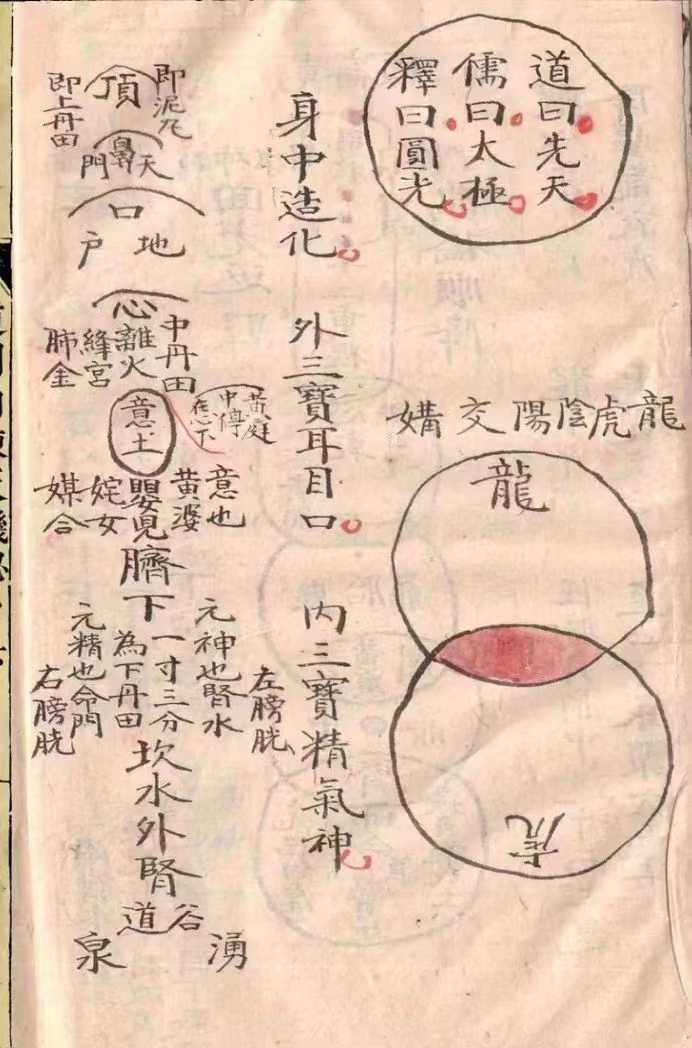 道曰先天
儒曰太極
釋曰圓光
龍虎陰陽交媾
龍
虎
身中造化
外三寶耳目口
內三寶精氣神
即泥丸
頂
即上丹田
天
鼻
門
口
地
户
心
中丹田
離火
絳宮
肺金
意土
黃庭
中停
心下
意也
黃婆
嬰兒
姹女
媒合
臍下
一寸三分
為下丹田
元神也腎水
左膀胱
元精也命門
右膀胱
坎水外腎
谷道
湧
泉